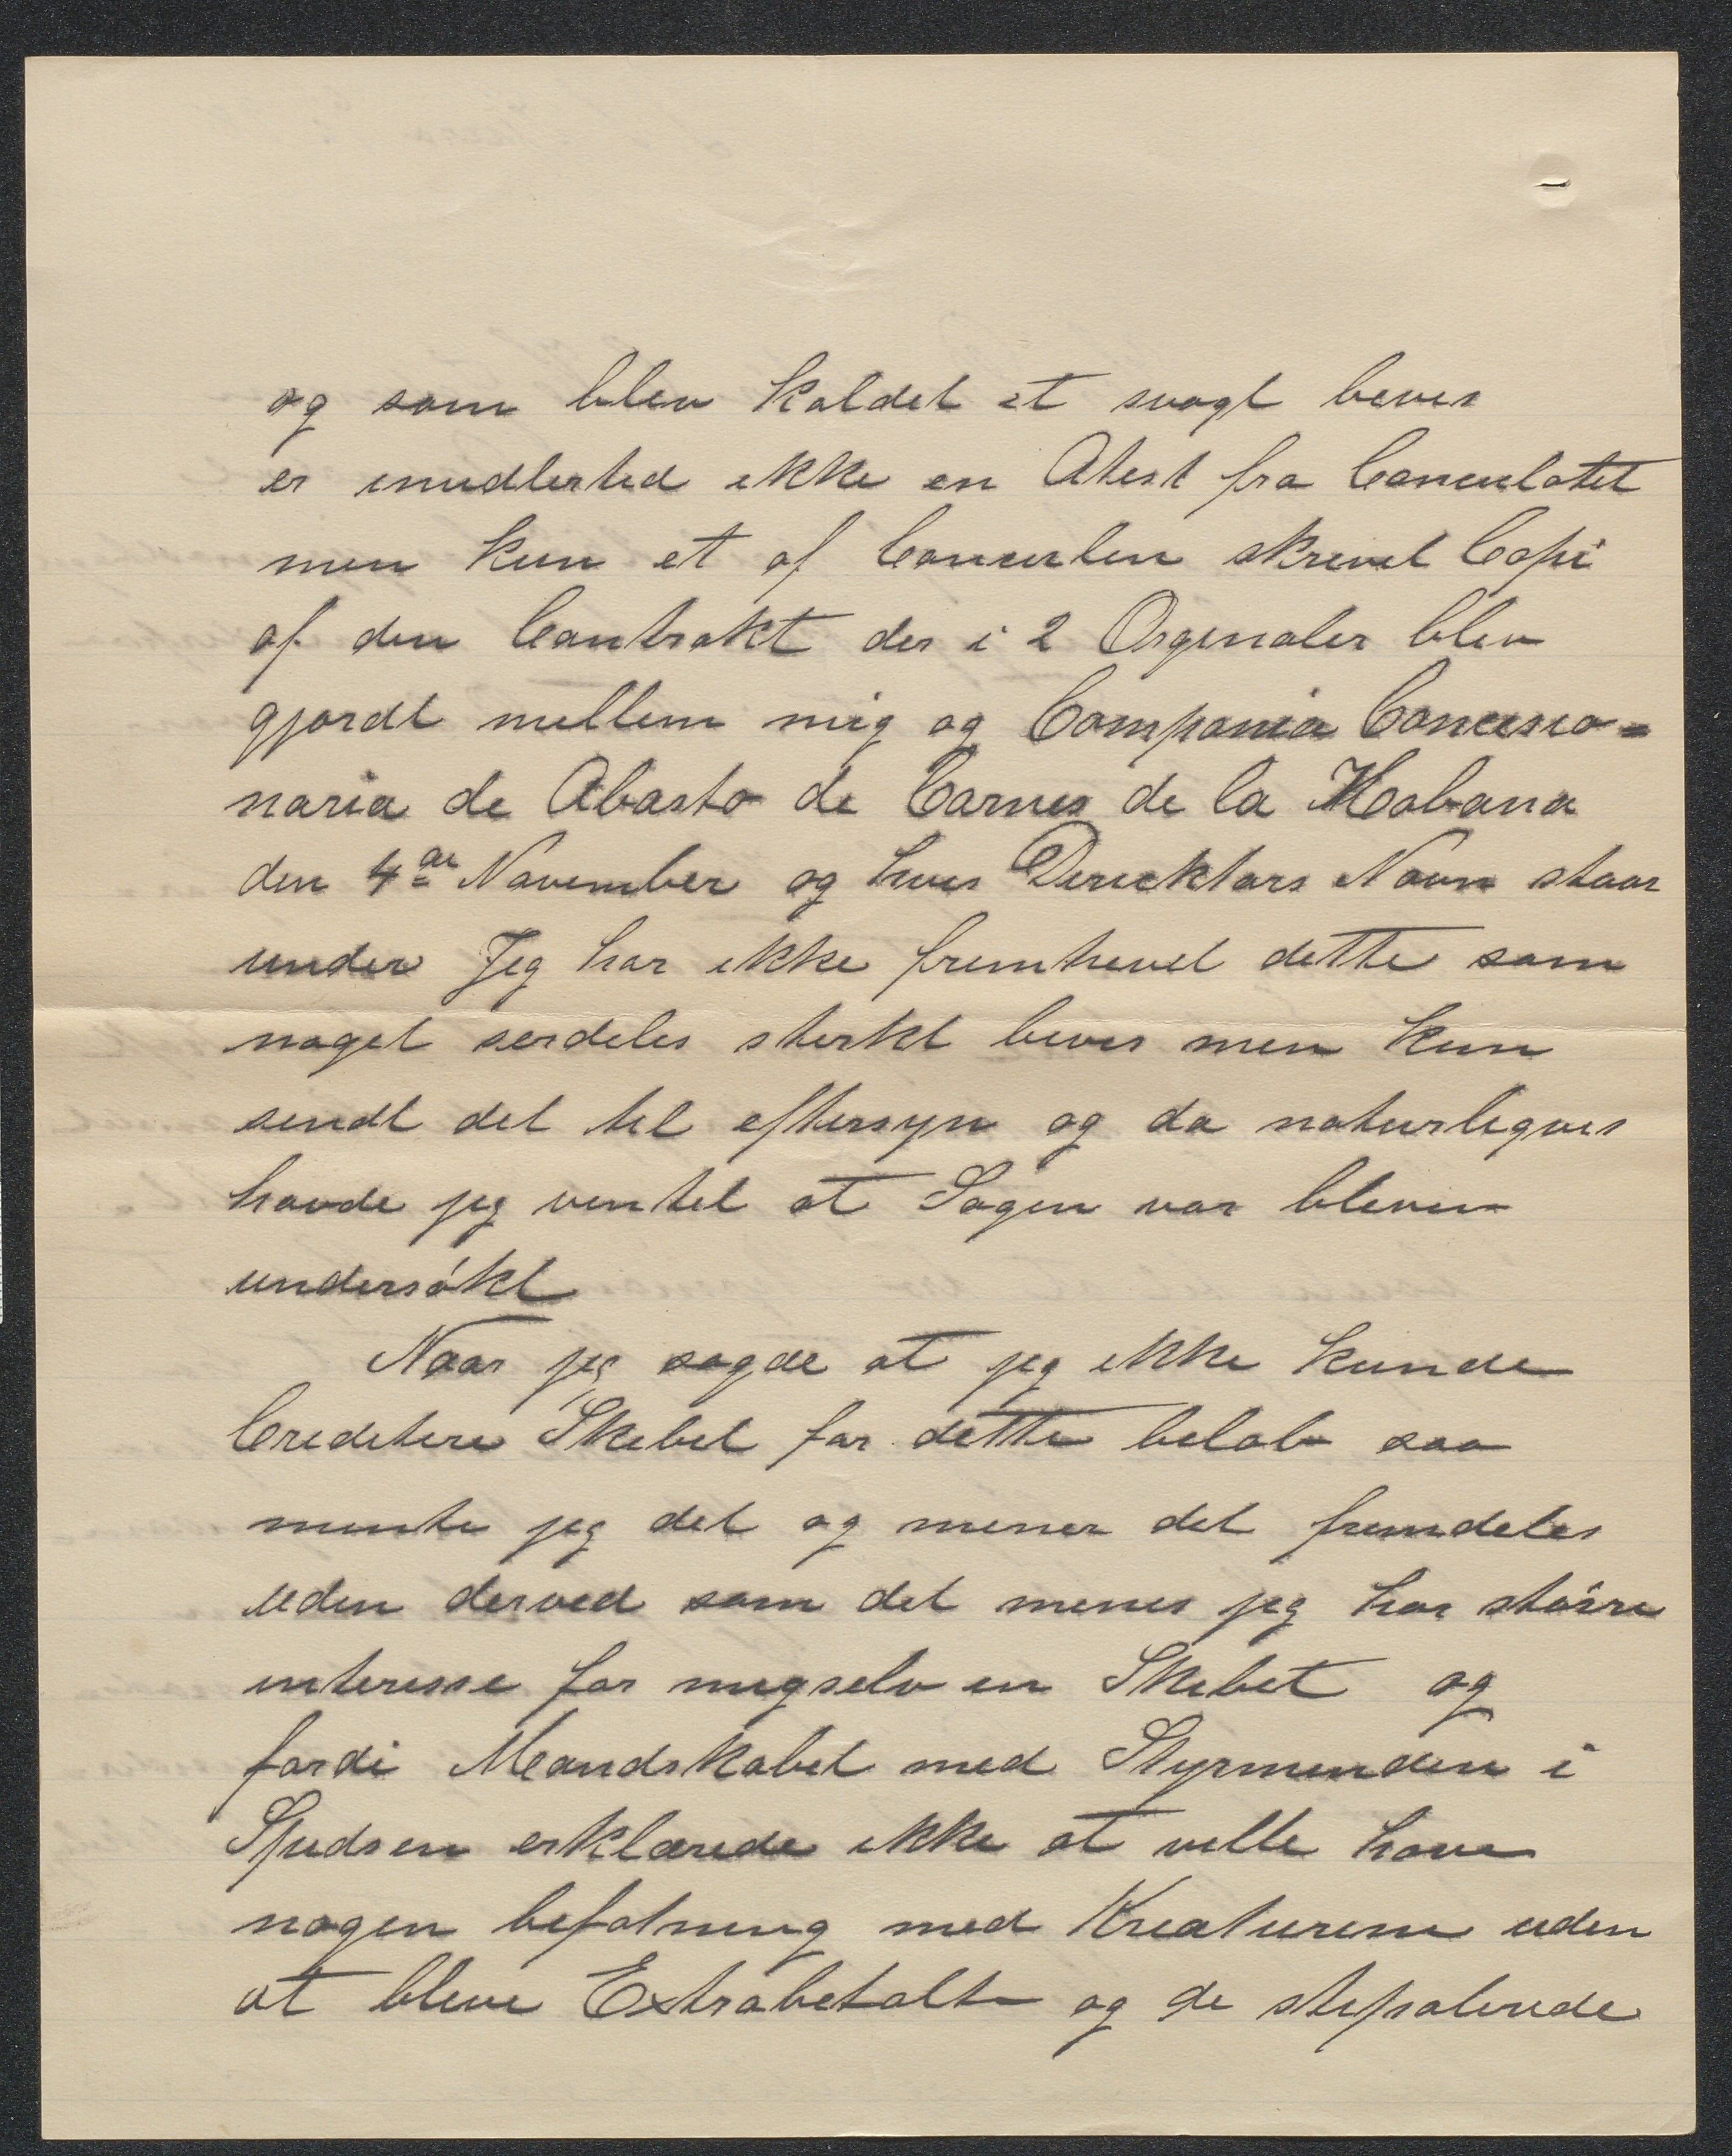 og som blev kaldet et svagt bevis
er imidlertid ikke en Atest fra Consulatet
men kun et af Consulen skrevet Copi
af den Contrakt der i 2 Orginaler blev
gjordt mellem mig og Compania Concesio-
naria de Abasto de Carnes de la Habana
den 4de November og hvis Direktørs Navn staar
under Jeg har ikke fremhevet dette som
noget serdeles sterkt bevis men kun
sendt det til eftersyn og da naturligvis
havde jeg ventet at Sagen var bleven
undersökt
Naar jeg sagde at jeg ikke kunde
Creditere Skibet for dette beløb saa
mente jeg det og mener det fremdeles
uden derved som det menes jeg har större
interesse for migselv en Skibet og
fordi Mandskabet med Styrmanden i
Spidsen erklærede ikke at ville have
nogen befatning med Kreaturene uden
at blive Extrabetalt og de stipolerede